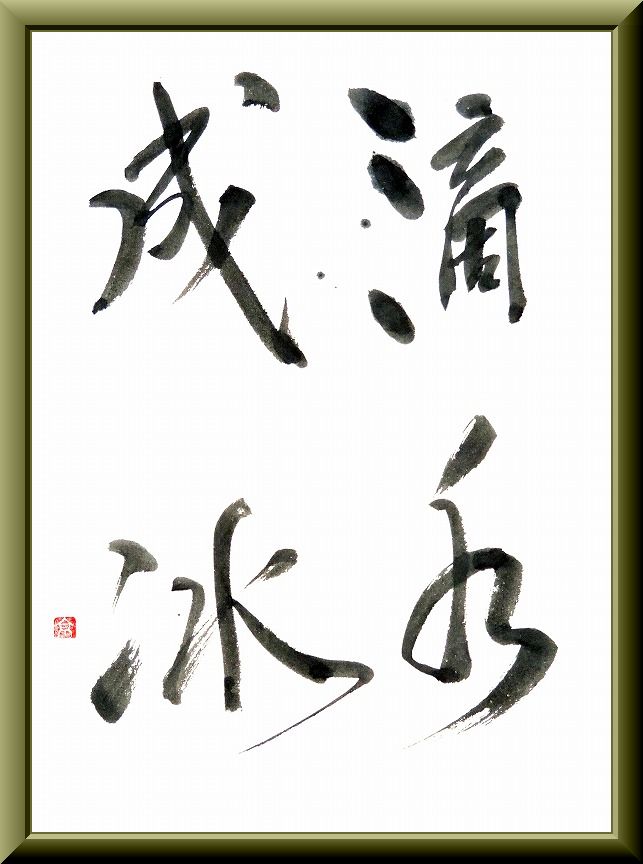 滴水
成冰